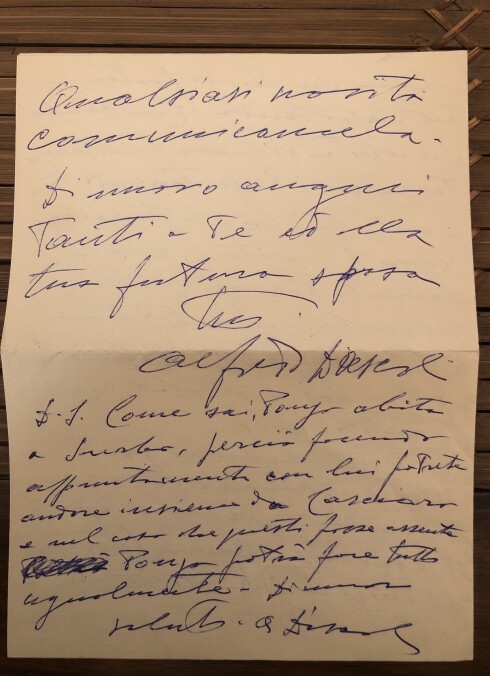 Qualsiasi novità
comunicamela.
Di nuovo auguri
Tanti a Te ed alla
tua futura sposa
Tuo
Alfredo
P.S. Come sai, Ponzo abita
a Surbo, perciò facendo
appuntamento con lui potrete
andare insieme da Casciaro
e nel caso che questi fosse assente
Ponzo potrà fare tutto
ugualmente - Di nuovo
saluti - A